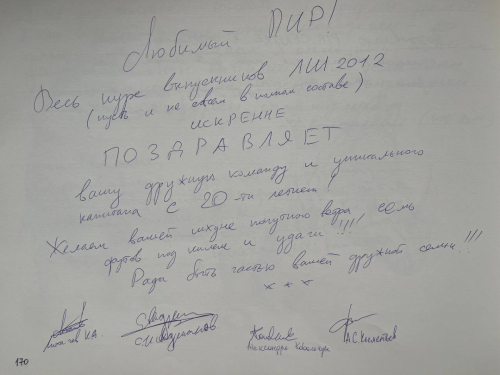 Любимый ПИР!
Весь пире выпускников ЛШ 2012
(пусть и не всем в полном составе)
ИСКРЕННЕ
ПОЗДРАВЛЯЕТ
вашу дружную команду и уникального
капитана с 20-ти летием!
Желаем вашей шхуне попутного ветра семь
футов под килем и удачи!!!
Рады быть частью вашей дружной семьи!!!
* * *
К.А.
170